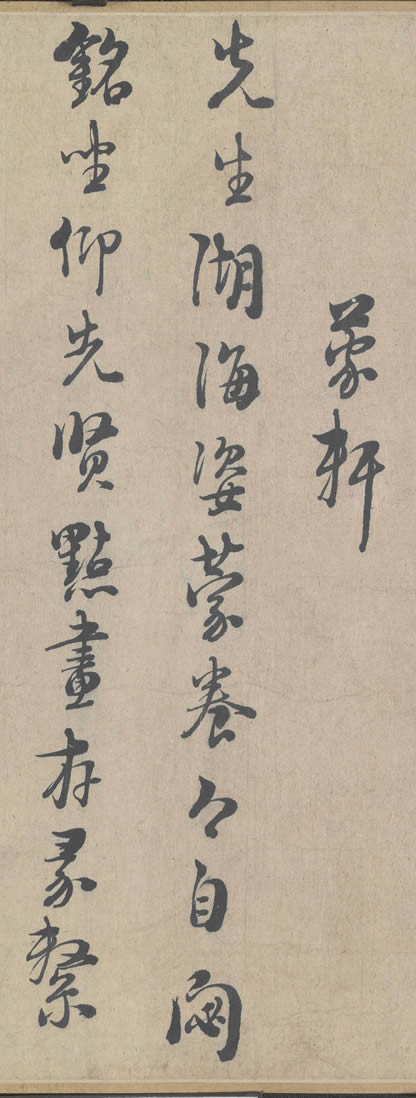 蒙軒
先生湖海姿蒙養今自閟
銘坐仰先賢點畫存彖繫